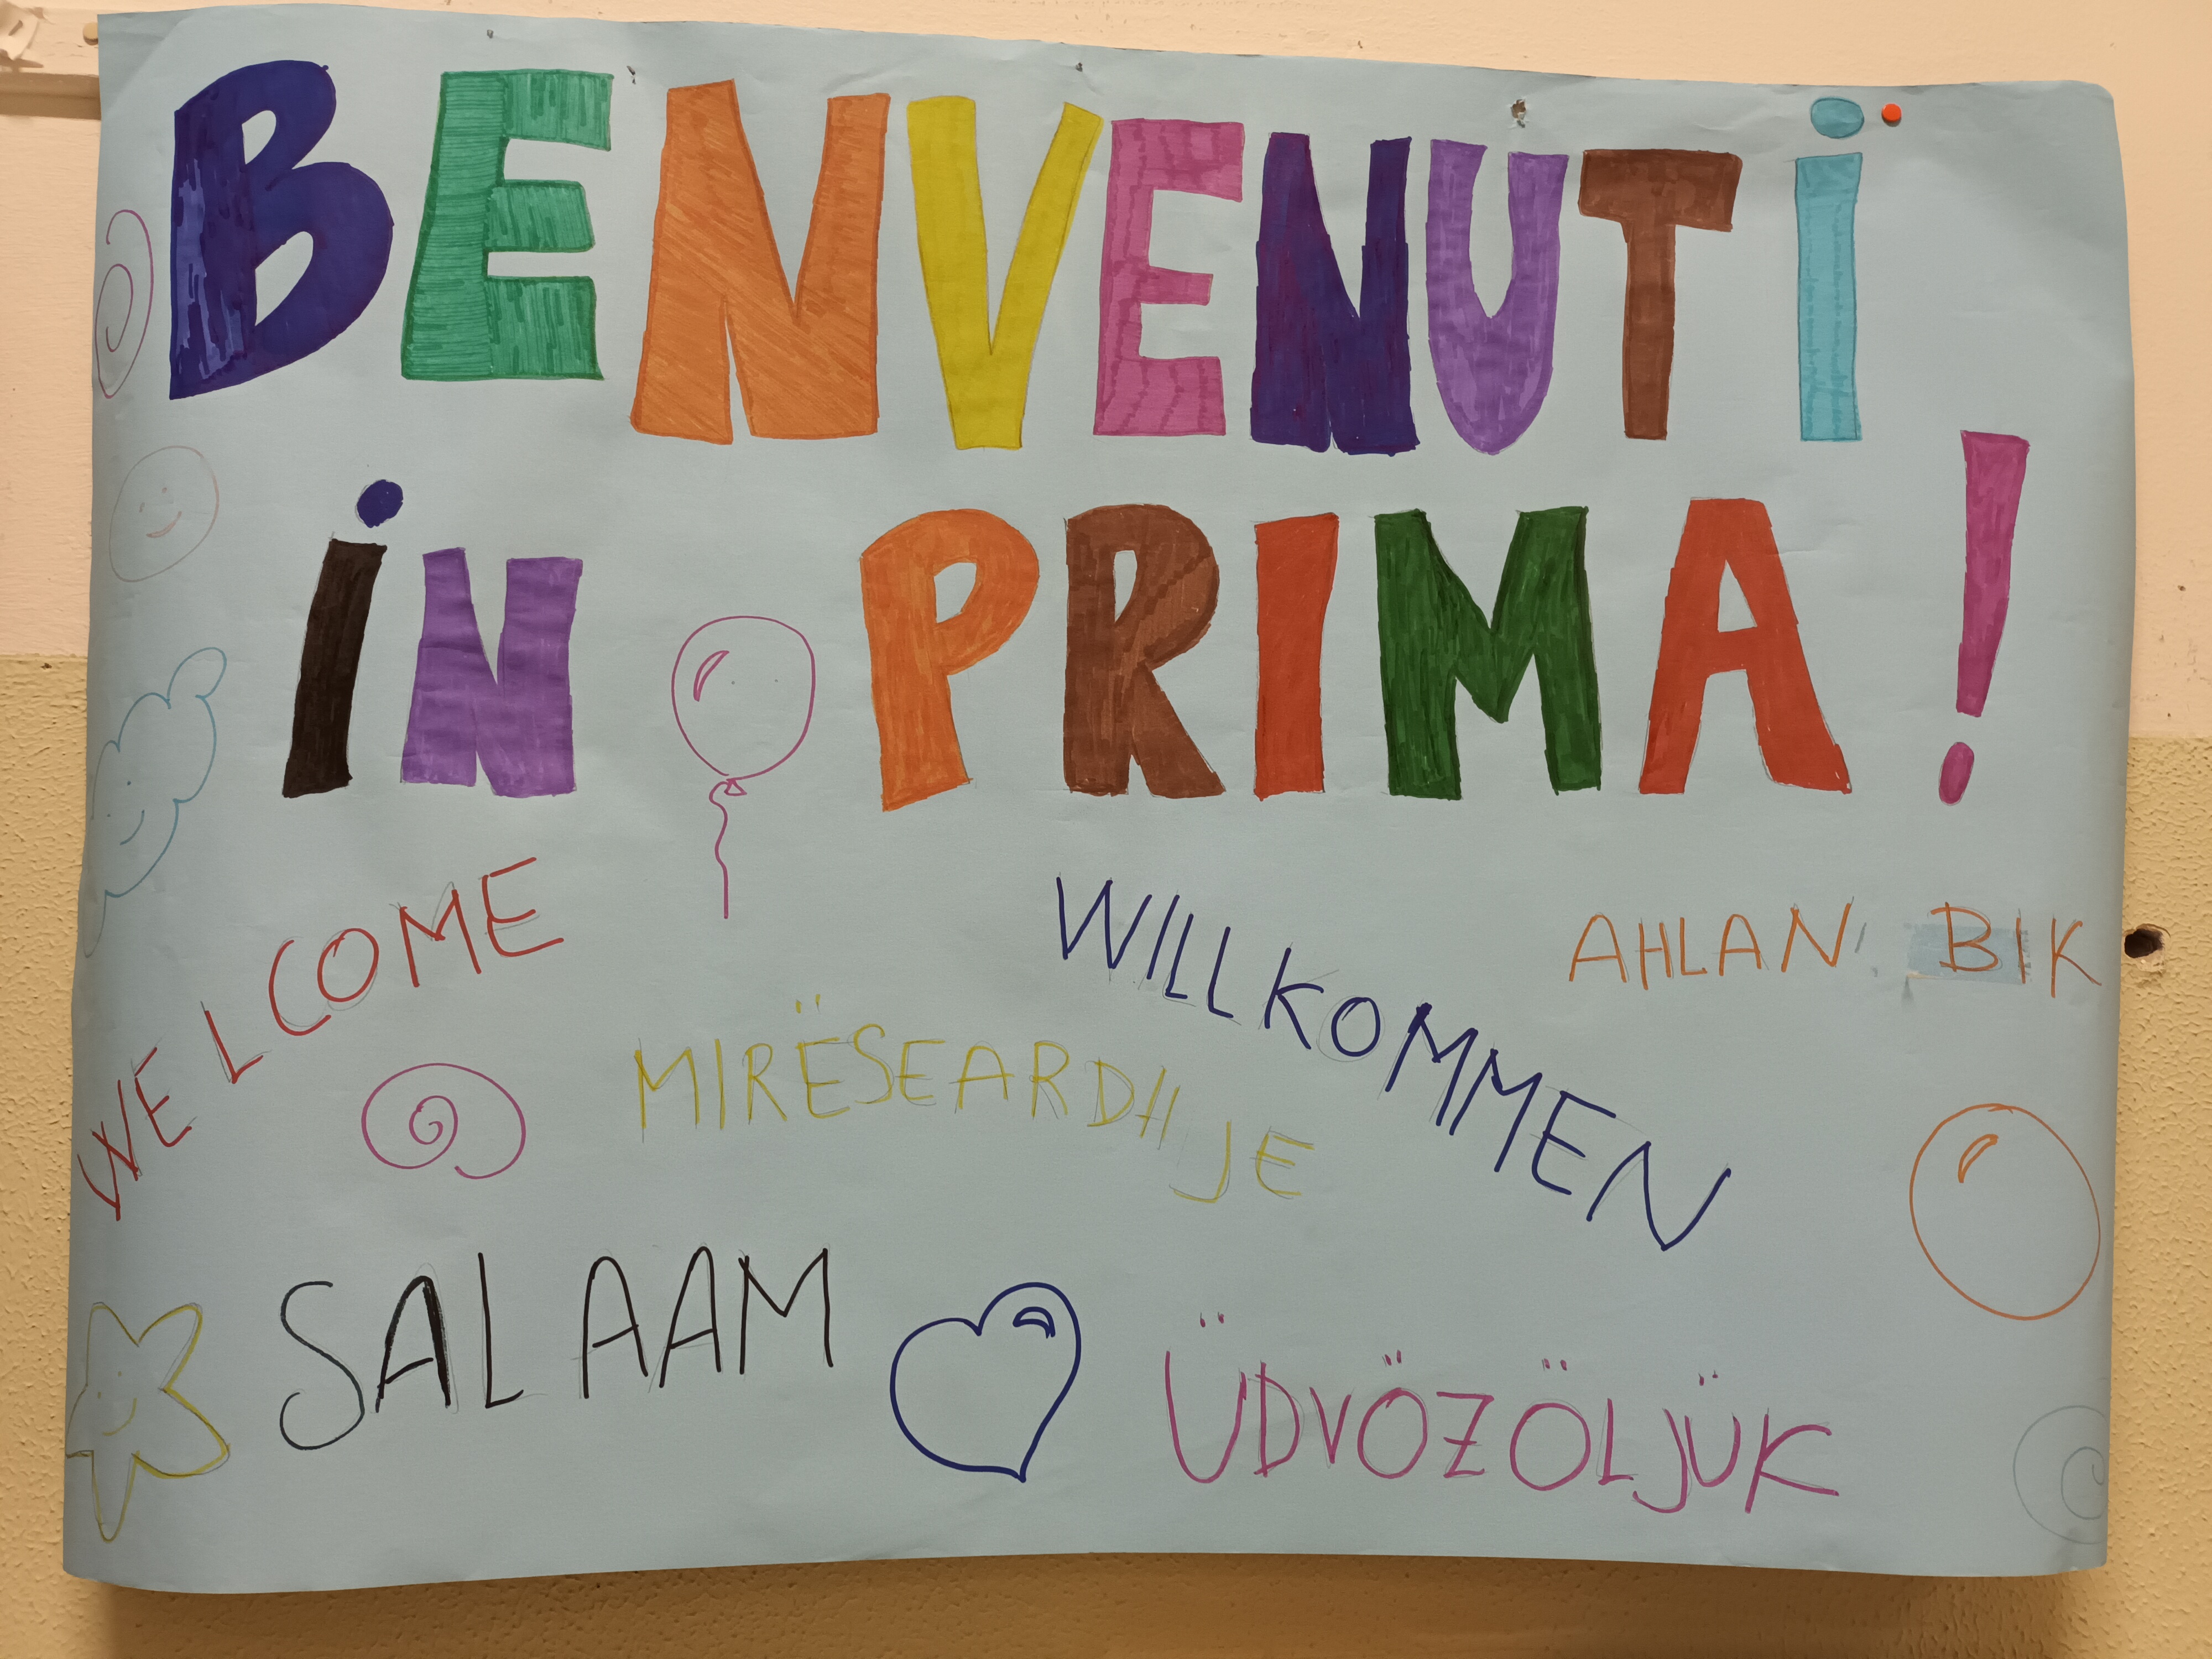 BENVENUTI
IN PRIMA!
WELCOME
WILLKOMMEN
AHLAN BIK
MIRËSEARDHJE
SALAAM
ÜDVÖZÖLJÜK